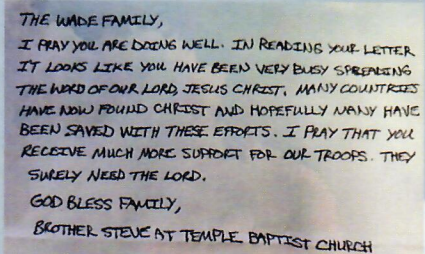 THE WADE FAMILY,
I PRAY YOU ARE DOING WELL. IN READING YOUR LETTER
IT LOOKS LIKE YOU HAVE BEEN VERY BUSY SPREADING
THE WORD OF OUR LORD, JESUS CHRIST. MANY COUNTRIES
HAVE NOW FOUND CHRIST AND HOPEFULLY MANY HAVE
BEEN SAVED WITH THESE EFFORTS. I PRAY THAT YOU
RECEIVE MUCH MORE SUPPORT FOR OUR TROOPS. THEY
SURELY NEED THE LORD.
GOD BLESS FAMILY,
BROTHER STEVE AT TEMPLE BAPTIST CHURCH